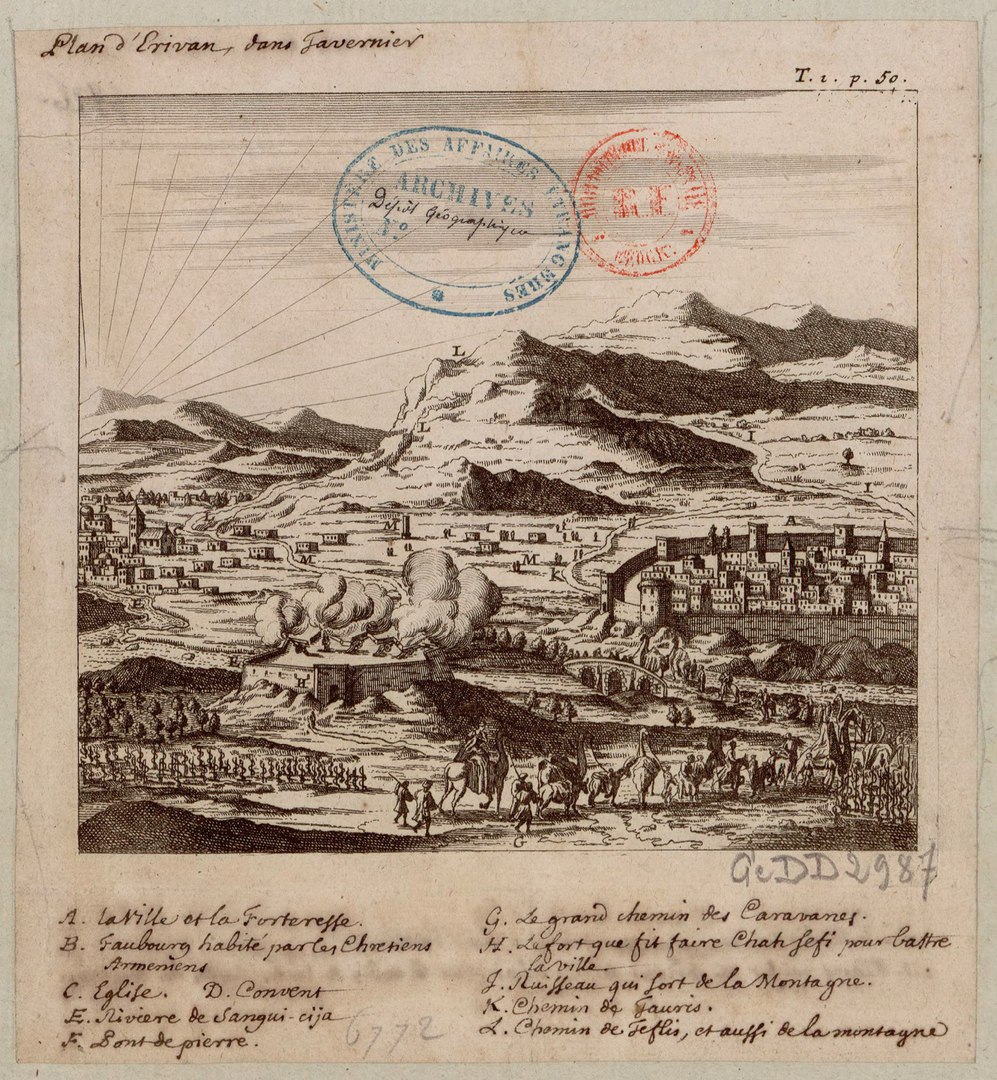 Plan d'Erivan, dans Tavernier
T. 1. p. 50.
MINISTÈRE DES AFFAIRES ETRANGÈRES
ARCHIVES
Dépôt Géographique
N°
R F
L
L
I
I
A
M
M
M
K
E
E
H
G
GeDD2987
A. la Ville et la Forteresse.
B. Faubourg habité par les Chretiens
Armeniens
C. Eglise. D. Convent
E. Riviere de Sangui-cija
F. Pont de pierre.
6772
G. Le grand chemin des Caravanes.
H. Le fort que fit faire Chah Sefi pour battre
la ville
J. Ruisseau qui sort de la Montagne.
K. Chemin de Tauris.
L. Chemin de Teflis, et aussi de la montagne